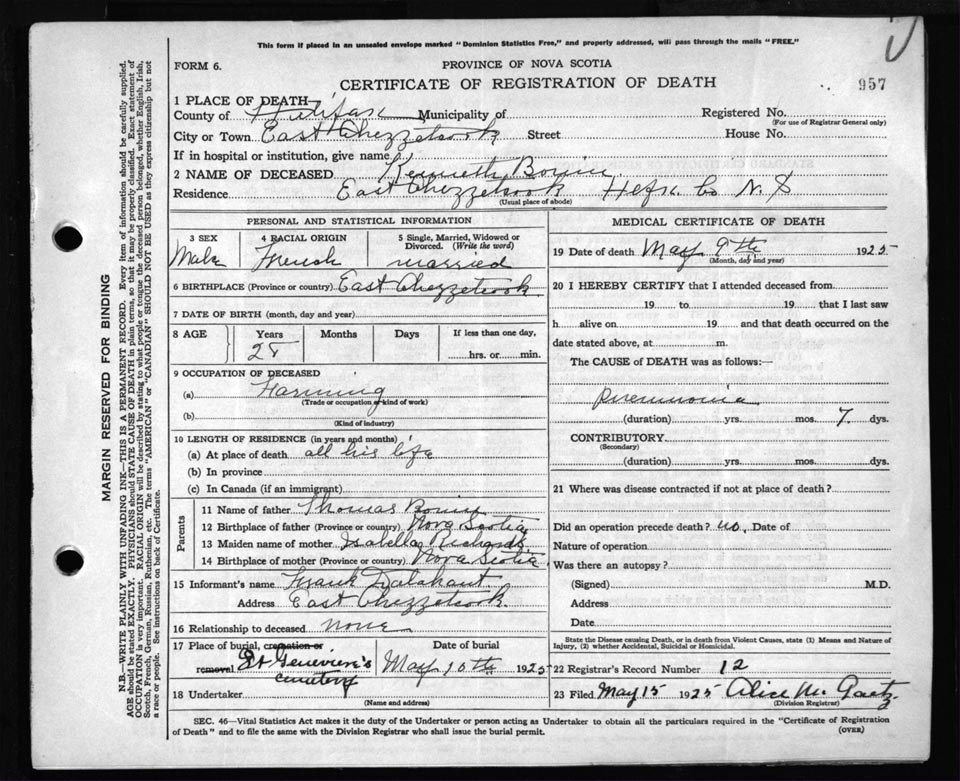 This form if placed in an unsealed envelope marked "Dominion Statistics Free," and properly addressed, will pass through the mails "FREE."
FORM 6.
PROVINCE OF NOVA SCOTIA
CERTIFICATE OF REGISTRATION OF DEATH
957
1 PLACE OF DEATH
County of Halifax Municipality of Registered No.
(For use of Registrar General only)
City or Town East Chezzetcook Street House No.
If in hospital or institution, give name
2 NAME OF DECEASED Kenneth
Residence East Chezzetcook Hfx. Co N. S
(Usual place of abode)
PERSONAL AND STATISTICAL INFORMATION
3 SEX 4 RACIAL ORIGIN 5 Single, Married, Widowed or Divorced. (Write the word)
Male French married
6 BIRTHPLACE (Province or country) East Chezzetcook
7 DATE OF BIRTH (month, day and year)
8 AGE Years Months Days If less than one day,
28 hrs. or min.
9 OCCUPATION OF DECEASED
(a) Farming
(Trade or occupation or kind of work)
(b)
(Kind of industry)
10 LENGTH OF RESIDENCE (in years and months)
(a) At place of death all his life
(b) In province
(c) In Canada (if an immigrant)
Parents
11 Name of father Thomas
12 Birthplace of father (Province or country) Nova Scotia
13 Maiden name of mother Isabella Richards
14 Birthplace of mother (Province or country) Nova Scotia
15 Informant's name Frank
Address East Chezzetcook
16 Relationship to deceased none
17 Place of burial, cremation or removal Date of burial
St Genevieve's cemetery May 10th 1925
18 Undertaker
(Name and address)
MEDICAL CERTIFICATE OF DEATH
19 Date of death May 9th 1925
(Month, day and year)
20 I HEREBY CERTIFY that I attended deceased from
19 to 19 that I last saw
h alive on 19 and that death occurred on the
date stated above, at m.
The CAUSE of DEATH was as follows:—
Pneumonia
(duration) yrs. mos. 7 dys.
CONTRIBUTORY
(Secondary)
(duration) yrs. mos. dys.
21 Where was disease contracted if not at place of death?
Did an operation precede death? no. Date of
Nature of operation
Was there an autopsy?
(Signed) M.D.
Address
Date
State the Disease causing Death, or in death from Violent Causes, state (1) Means and Nature of
Injury, (2) whether Accidental, Suicidal or Homicidal.
22 Registrar's Record Number 12
23 Filed May 15 1925 Alice M. Gaetz
(Division Registrar)
SEC. 46—Vital Statistics Act makes it the duty of the Undertaker or person acting as Undertaker to obtain all the particulars required in the "Certificate of Registration
of Death" and to file the same with the Division Registrar who shall issue the burial permit.
(OVER)
MARGIN RESERVED FOR BINDING
N.B.—WRITE PLAINLY WITH UNFADING INK—THIS IS A PERMANENT RECORD. Every item of information should be carefully supplied.
AGE should be stated EXACTLY. PHYSICIANS should STATE CAUSE OF DEATH in plain terms, so that it may be properly classified. Exact statement of
OCCUPATION is very important. RACIAL ORIGIN will be described by stating to what people or tongue the deceased person belonged, whether English, Irish,
Scotch, French, German, Russian, Ruthenian, etc. The terms "AMERICAN" or "CANADIAN" SHOULD NOT BE USED as they express citizenship but not
a race or people. See instructions on back of Certificate.